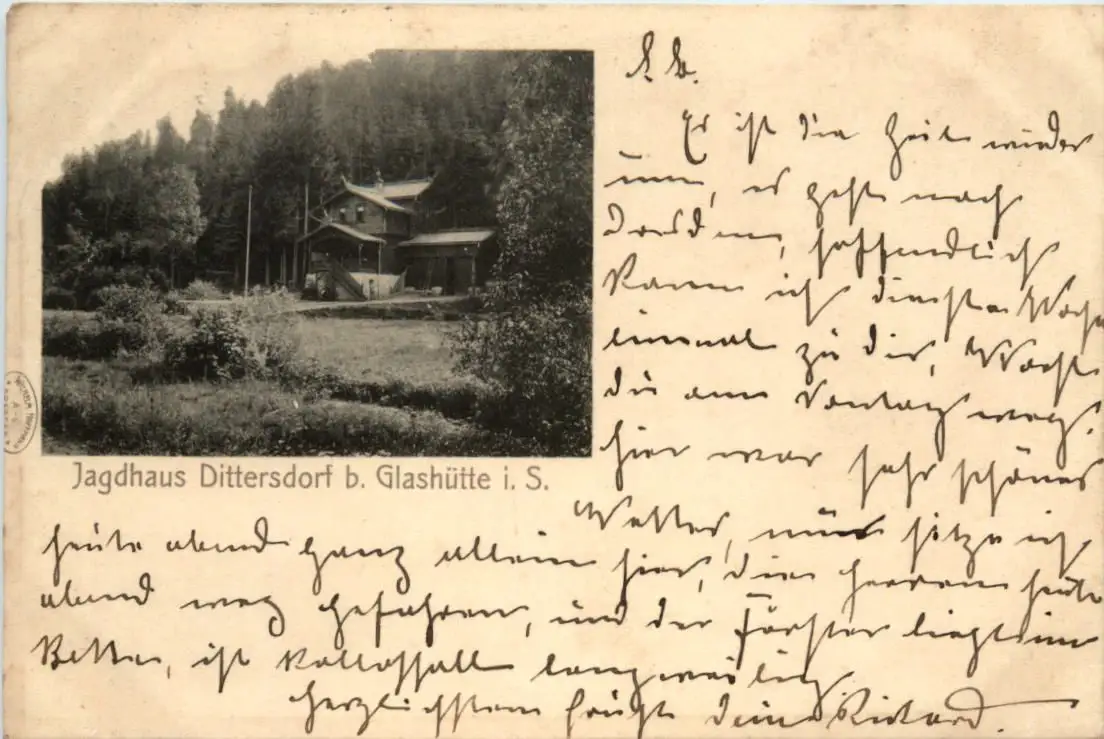 L. E.
Es ist die Zeit wieder
um, es geht nach
Dresden, hoffendlich
kann ich diese Woche
einmal zu dir,
du am Sontag weg.
hier war sehr schönes
Wetter, nur sitze ich
heute abend ganz allein hier, die herren heute
abend weg gefahren, und der Förster liegt im
Bette, ist kollossall langweilig.
herzlichsten Grüßt deine Richard.
Jagdhaus Dittersdorf b. Glashütte i. S.